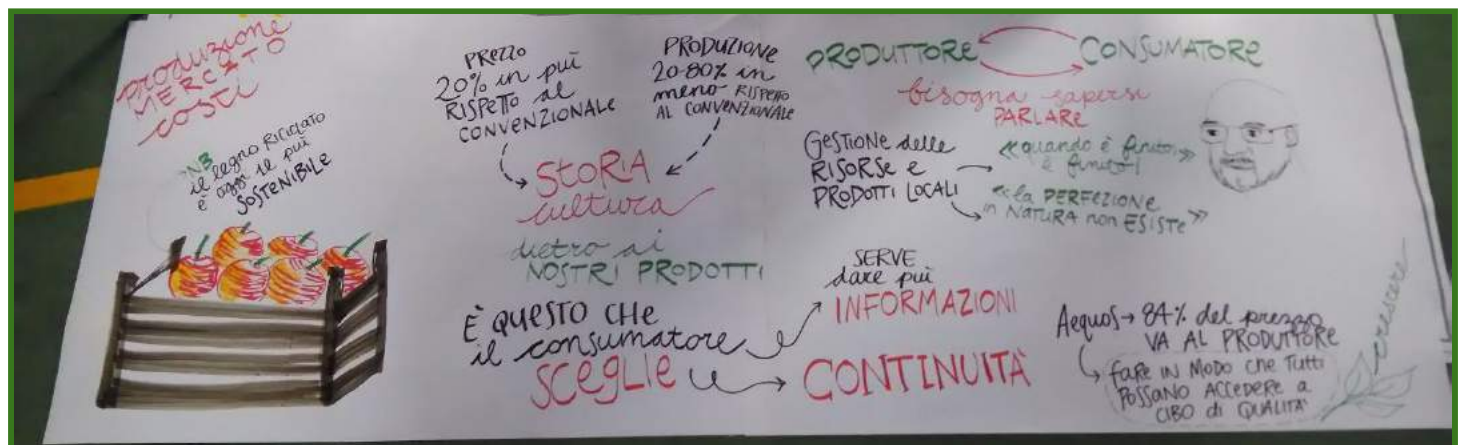 produzione
MERCATO
costi
NB
il legno RICICLATO
è oggi il più
SOSTENIBILE
PREZZO
20% in più
RISPETTO al
CONVENZIONALE
PRODUZIONE
20-80% in
meno RISPETTO
AL CONVENZIONALE
STORIA
cultura
dietro ai
NOSTRI PRODOTTI
È QUESTO CHE
il consumatore
SCEGLIE
SERVE
dare più
INFORMAZIONI
CONTINUITÀ
PRODUTTORE
CONSUMATORE
bisogna sapersi
PARLARE
GESTIONE delle
RISORSE e
PRODOTTI LOCALI
«quando è finito,
è finito!»
«la PERFEZIONE
in NATURA non ESISTE»
Aequos → 84% del prezzo
VA AL PRODUTTORE
fare IN MODO che TUTTI
POSSANO ACCEDERE a
CIBO di QUALITÀ
crescere